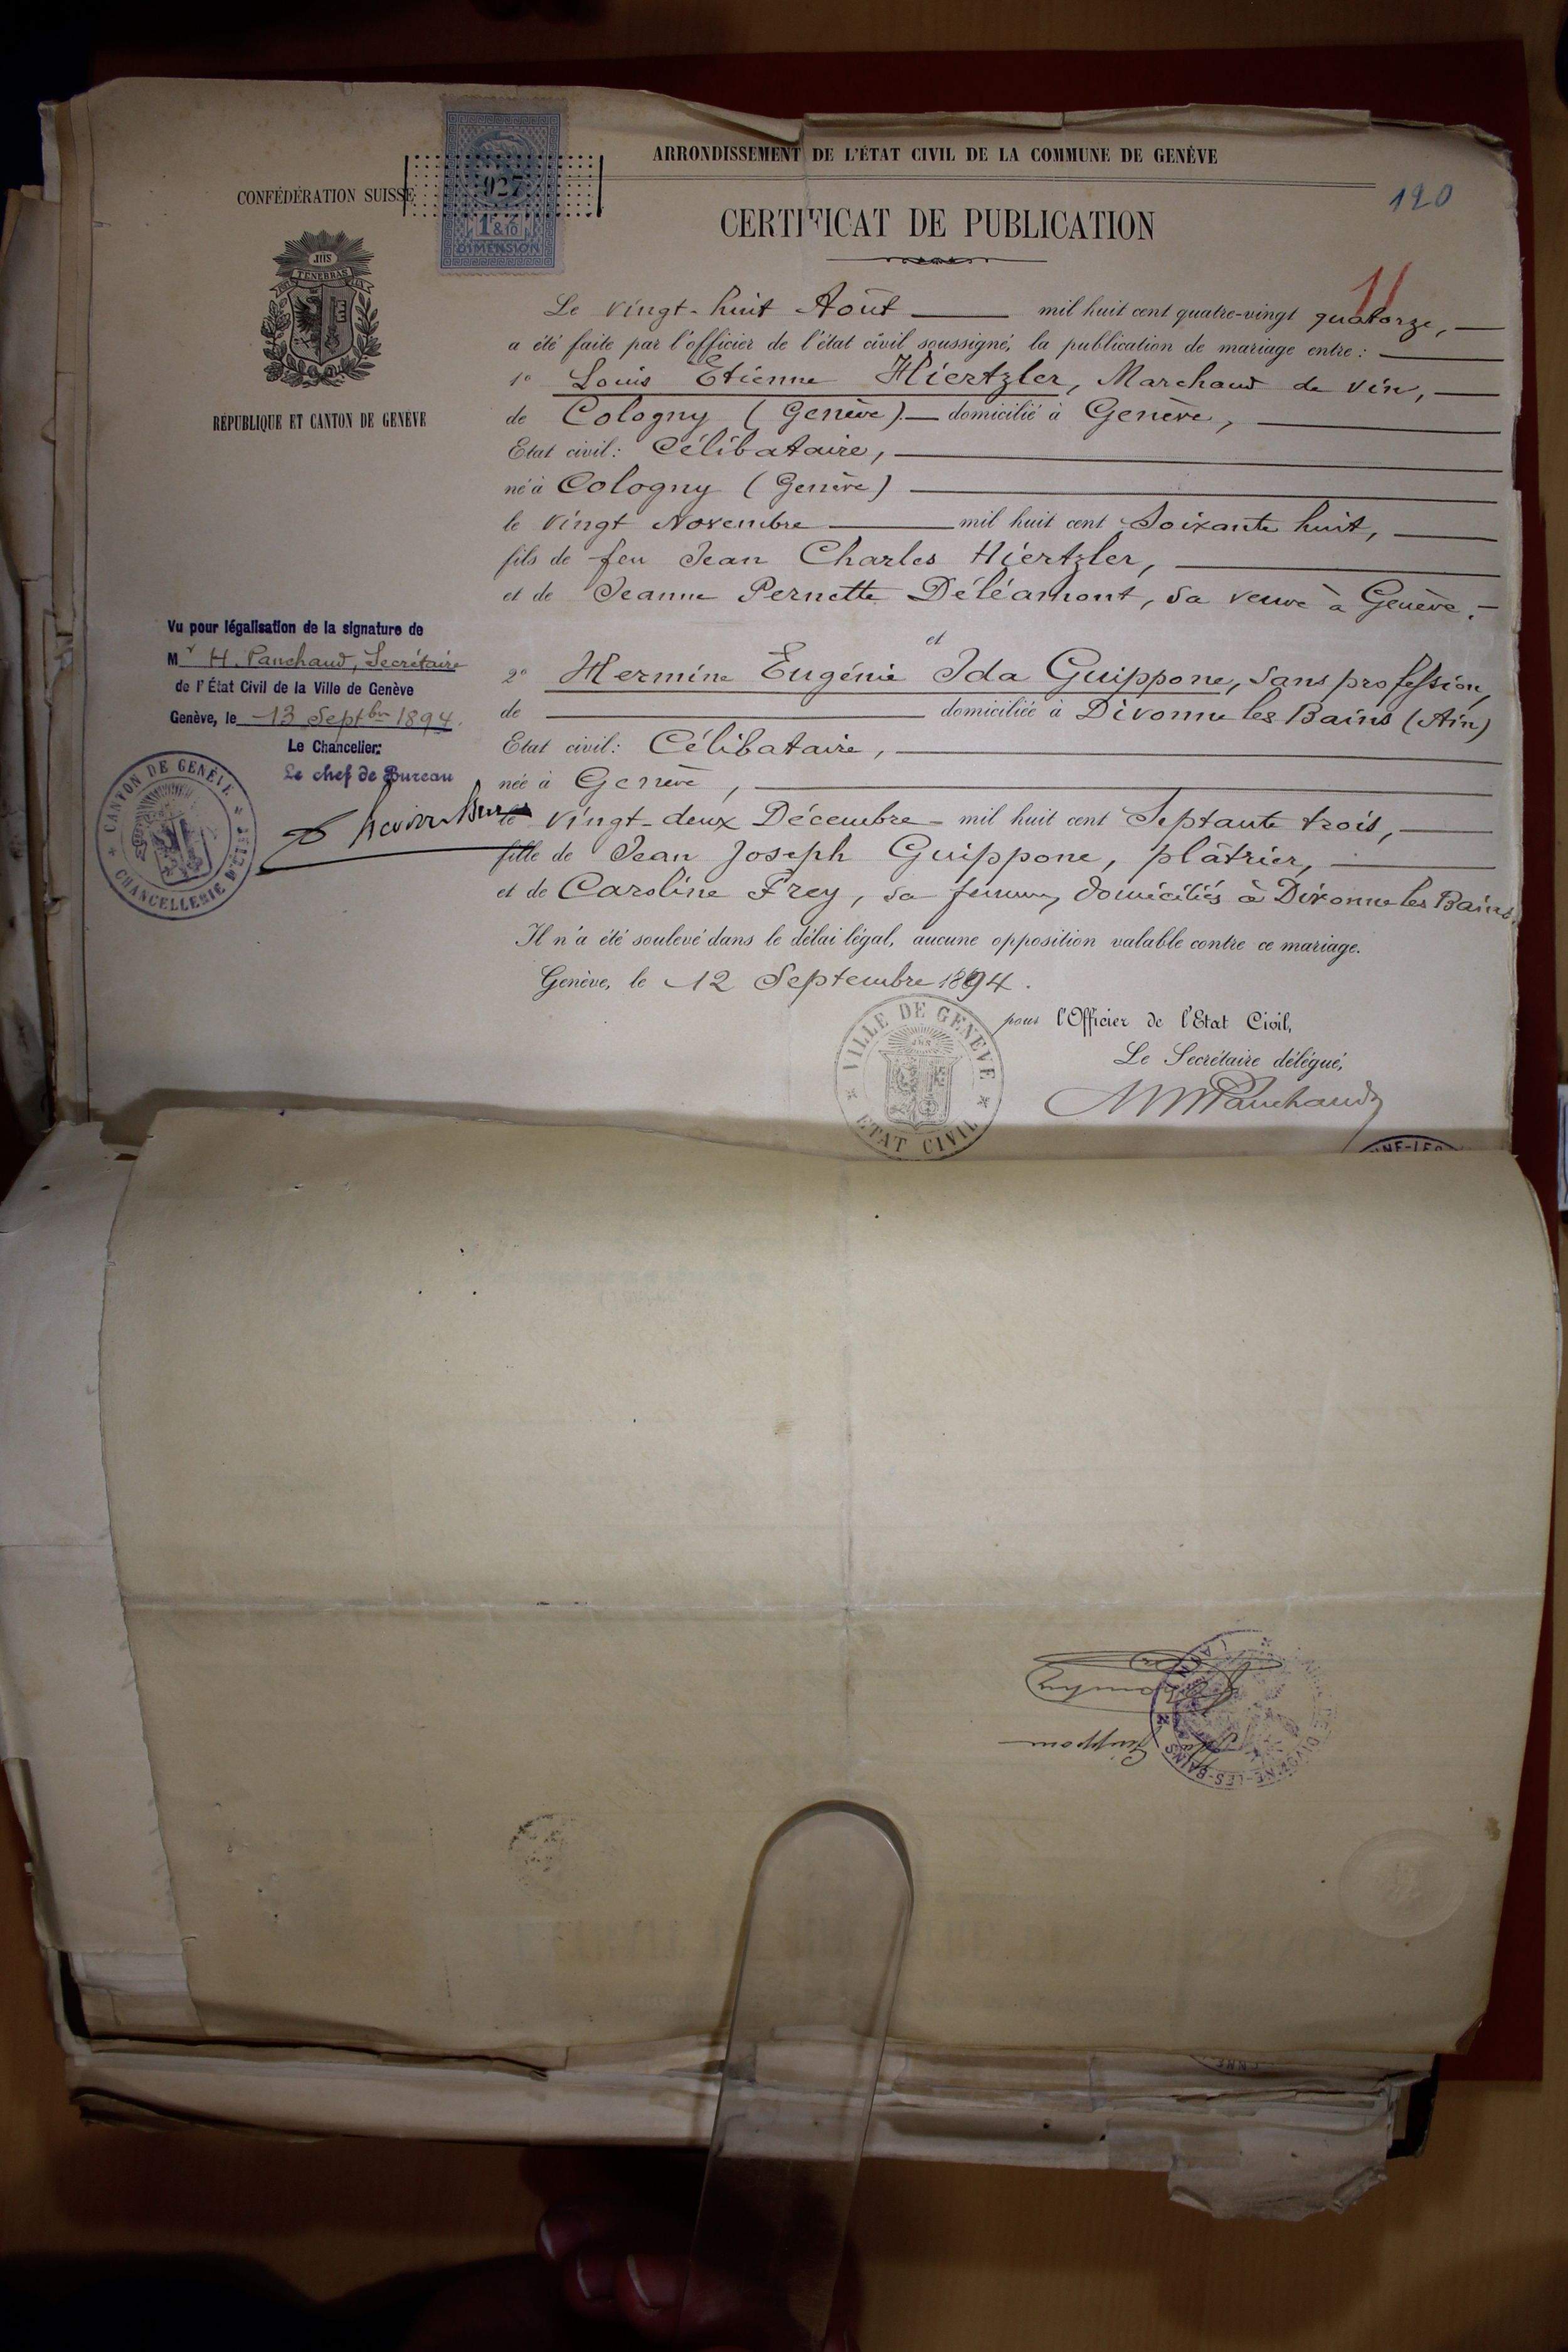 ARRONDISSEMENT DE L'ÉTAT CIVIL DE LA COMMUNE DE GENÈVE
120
CONFÉDÉRATION SUISSE
927
1F & 2/10
DIMENSION
CERTIFICAT DE PUBLICATION
JHS
TENEBRAS
RÉPUBLIQUE ET CANTON DE GENÈVE
11
Le vingt-huit Août mil huit cent quatre-vingt quatorze,
a été faite par l'officier de l'état civil soussigné, la publication de mariage entre :
1º Louis Etienne Hiertzler, Marchand de vin,
de Cologny (Genève) domicilié à Genève,
Etat civil: Célibataire,
né à Cologny (Genève)
le vingt Novembre mil huit cent Soixante huit,
fils de feu Jean Charles Hiertzler,
et de Jeanne Pernette Déléamont, sa veuve à Genève.
et
2º Hermine Eugénie Ida Guippone, sans profession,
de domiciliée à Divonne les Bains (Ain)
Etat civil: Célibataire,
née à Genève,
le vingt-deux Décembre mil huit cent Septante trois,
fille de Jean Joseph Guippone, plâtrier,
et de Caroline Frey, sa femme, domiciliés à Divonne les Bains.
Il n'a été soulevé dans le délai légal, aucune opposition valable contre ce mariage.
Genève, le 12 Septembre 1894.
pour l'Officier de l'Etat Civil,
Le Secrétaire délégué,
Panchaud
VILLE DE GENEVE
ETAT CIVIL
Vu pour légalisation de la signature de
Mr H. Panchaud, Secrétaire
de l'État Civil de la Ville de Genève
Genève, le 13 Septbre 1894.
Le Chancelier:
Le chef de Bureau
CANTON DE GENÈVE
CHANCELLERIE D'ÉTAT
NNE-LES
Guippone
DIVONNE-LES-BAINS